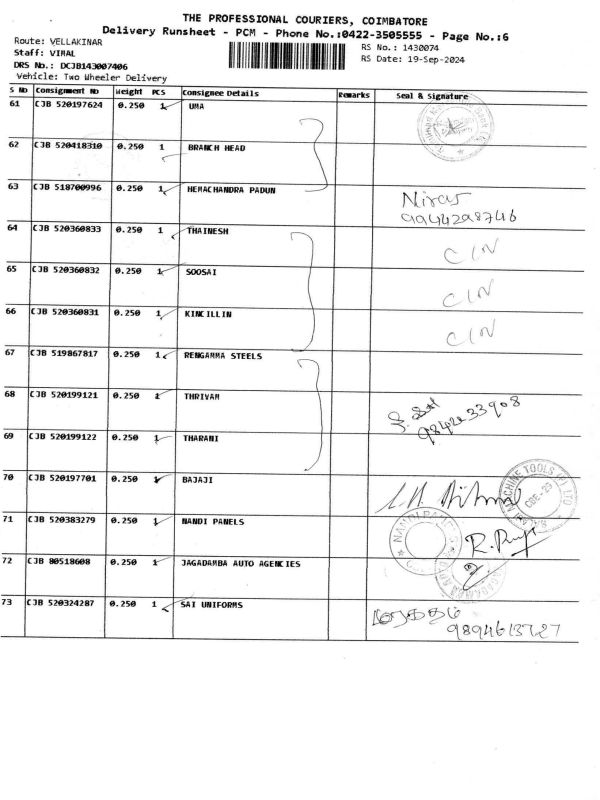 THE PROFESSIONAL COURIERS, COIMBATORE
Delivery Runsheet - PCM - Phone No.:0422-3505555 - Page No.:6
Route: VELLAKINAR
RS No.: 1430074
Staff: VIMAL
RS Date: 19-Sep-2024
DRS No.: DCJB143007406
Vehicle: Two Wheeler Delivery
S No Consignment No Weight PCS Consignee Details Remarks Seal & Signature
61 CJB 520197624 0.250 1 UMA
62 CJB 520418310 0.250 1 BRANCH HEAD
63 CJB 518700996 0.250 1 HEMACHANDRA PADUN
9944298746
64 CJB 520360833 0.250 1 THAINESH
65 CJB 520360832 0.250 1 SOOSAI
66 CJB 520360831 0.250 1 KINCILLIN
67 CJB 519867817 0.250 1 RENGAMMA STEELS
68 CJB 520199121 0.250 1 THRIVAM
9842233908
69 CJB 520199122 0.250 1 THARANI
70 CJB 520197701 0.250 1 BAJAJI
MACHINE TOOLS (P) LTD
CBE-29
71 CJB 520383279 0.250 1 NANDI PANELS
72 CJB 80518608 0.250 1 JAGADAMBA AUTO AGENCIES
73 CJB 520324287 0.250 1 SAI UNIFORMS